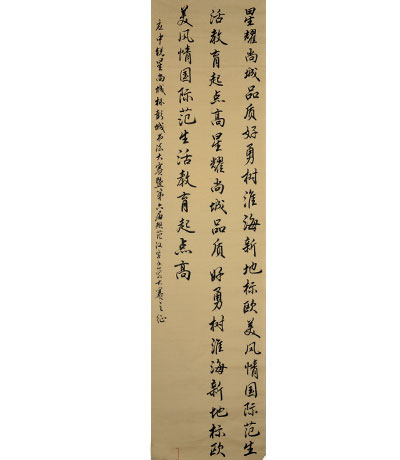 星耀尚城品质好勇树淮海新地标欧美风情国际范生
活教育起点高星耀尚城品质好勇树淮海新地标欧
美风情国际范生活教育起点高
中锐星尚城杯彭城书法大赛暨第六届规范汉字书写大赛之征